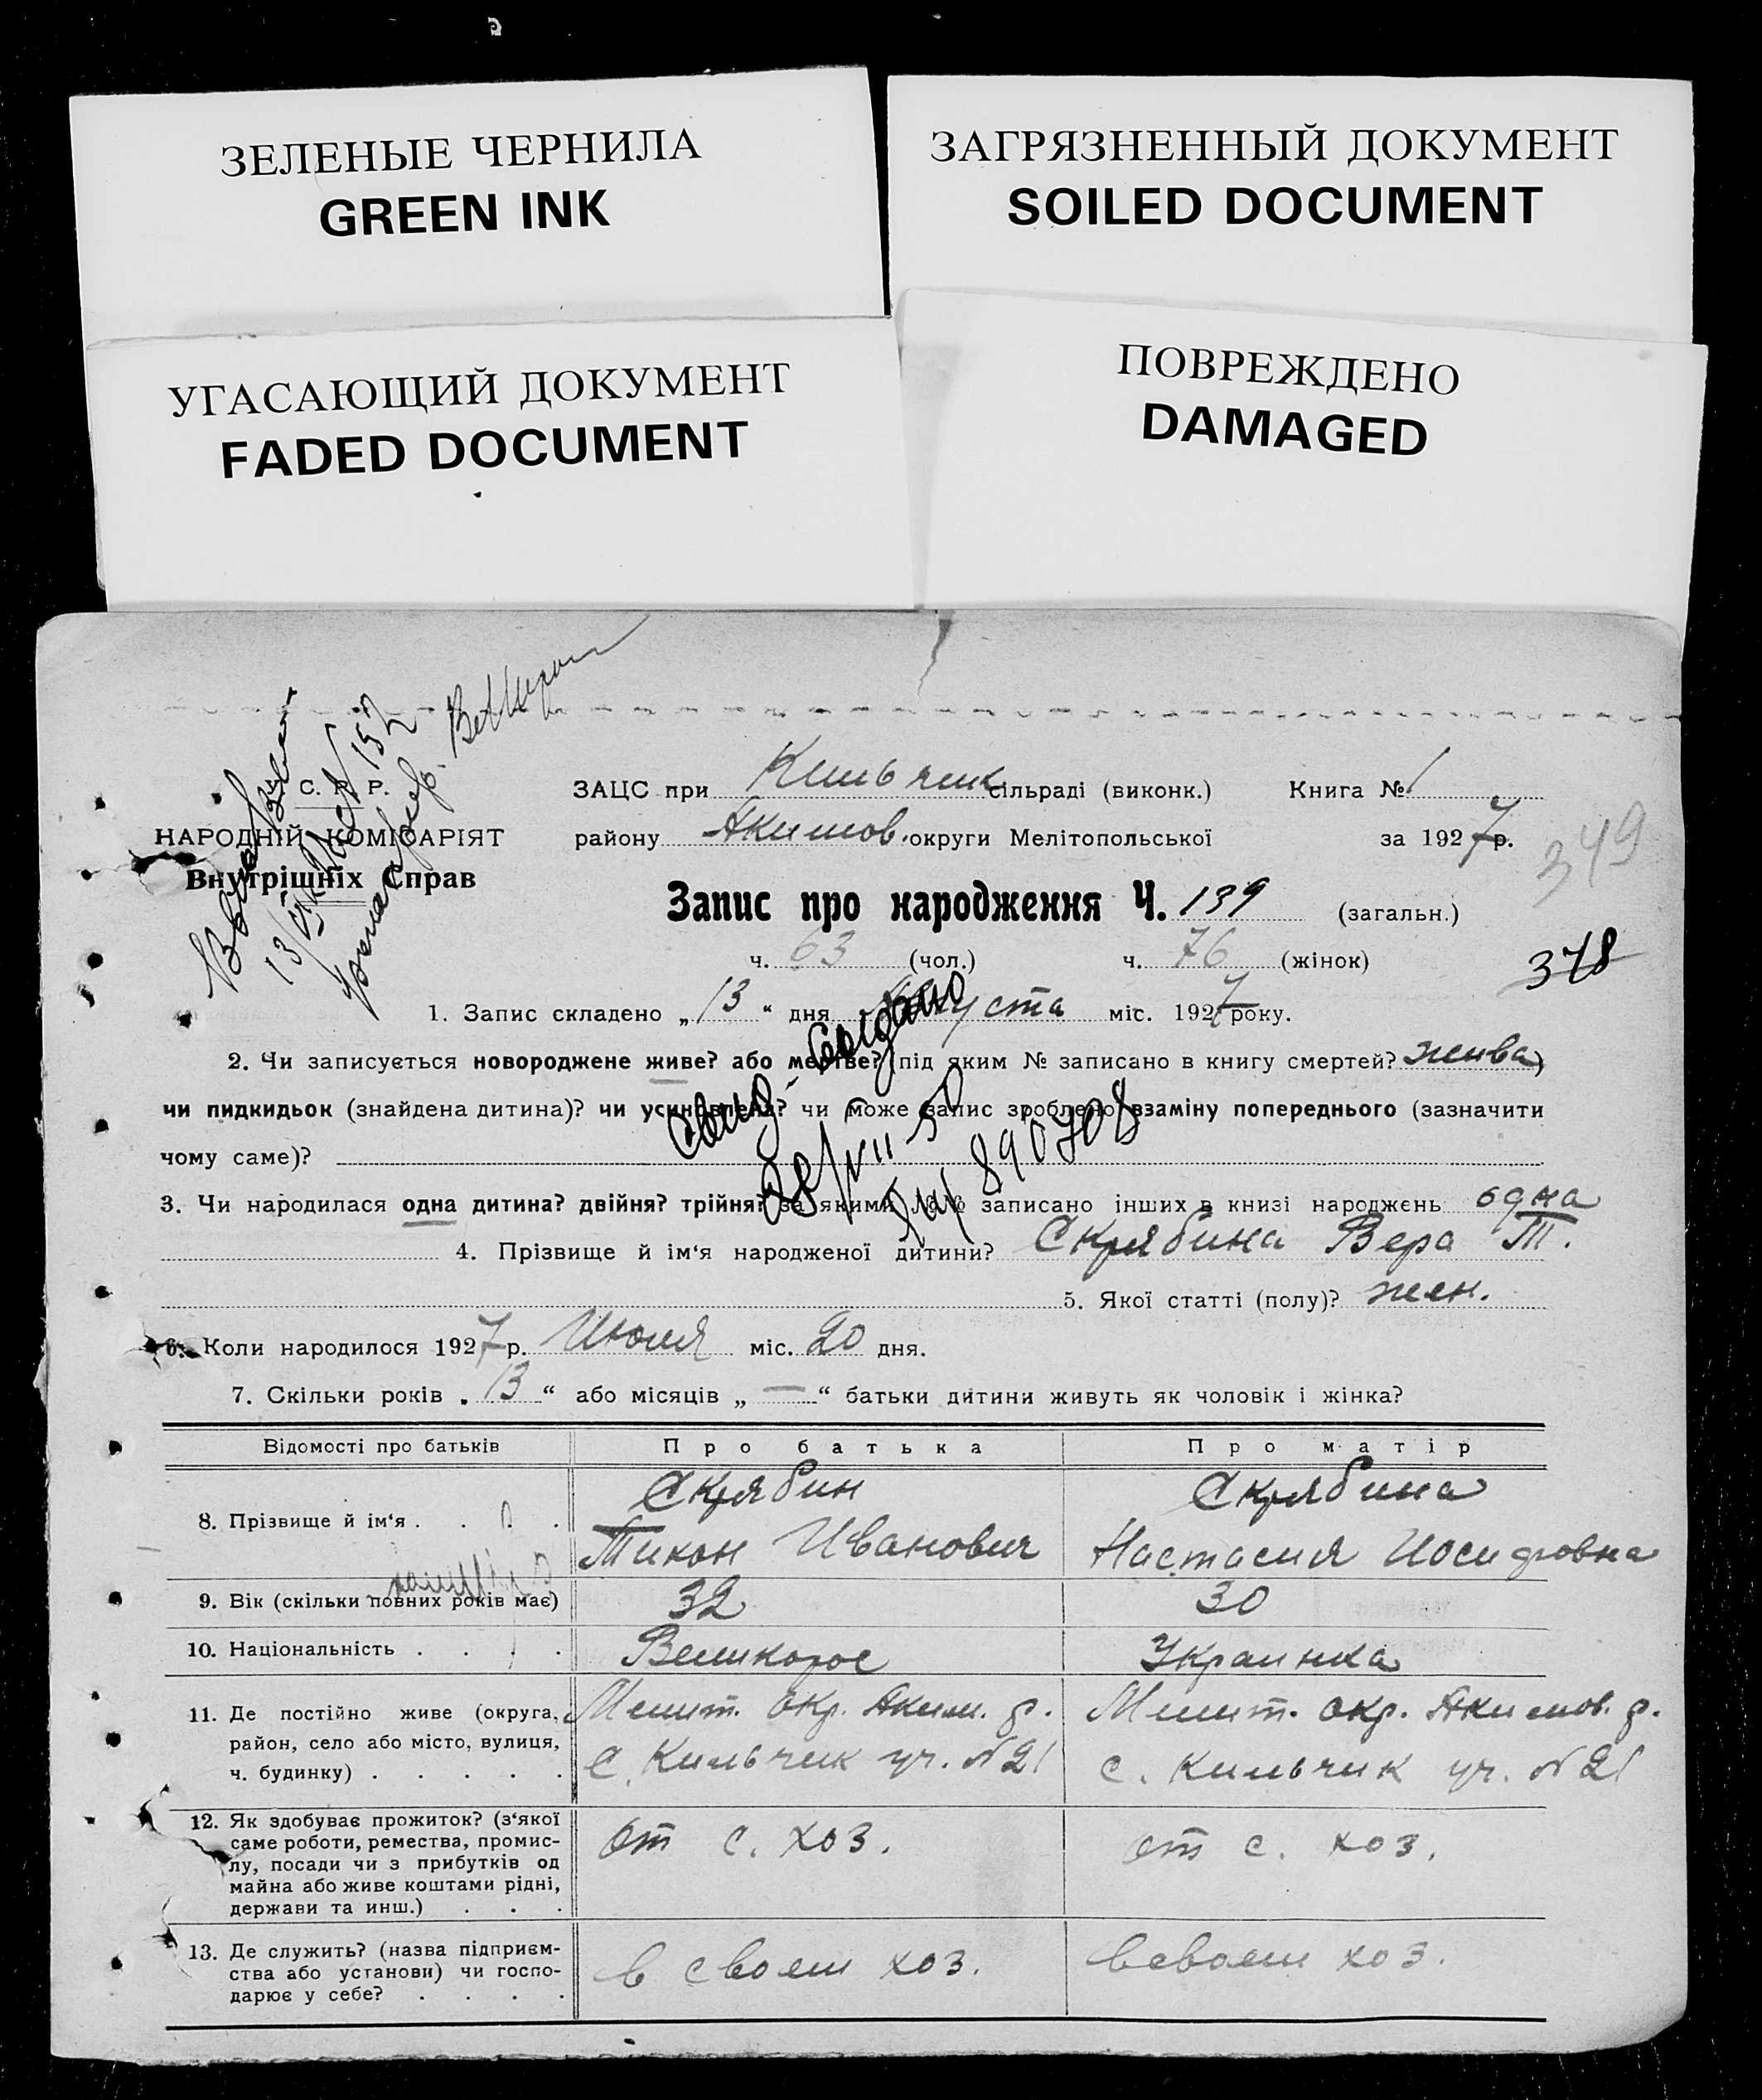 ЗЕЛЕНЫЕ ЧЕРНИЛА
GREEN INK
ЗАГРЯЗНЕННЫЙ ДОКУМЕНТ
SOILED DOCUMENT
УГАСАЮЩИЙ ДОКУМЕНТ
FADED DOCUMENT
ПОВРЕЖДЕНО
DAMAGED
С. Р. Р.
НАРОДНІЙ КОМІСАРІЯТ
Внутрішніх Справ
ЗАЦС при Кильчик сільраді (виконк.) Книга № 1
району Акимов. округи Мелітопольської за 1927 р.
349
Запис про народження Ч. 139 (загальн.)
ч. 63 (чол.) ч. 76 (жінок)
378
1. Запис складено „13“ дня Августа міс. 1927 року.
2. Чи записується новороджене живе? або мертве? (під яким № записано в книгу смертей? жива)
чи пидкидьок (знайдена дитина)? чи усиновлена? чи може запис зроблено взаміну попереднього (зазначити
чому саме)?
28/VII 50
890708
3. Чи народилася одна дитина? двійня? трійня? за якими №№ записано інших в книзі народжень одна
4. Прізвище й ім‘я народженої дитини? Скрябина Вера Т.
5. Якої статті (полу)? жен.
6. Коли народилося 1927 р. Июля міс. 20 дня.
7. Скільки років „13“ або місяців „—“ батьки дитини живуть як чоловік і жінка?
Відомості про батьків Про батька Про матір
8. Прізвище й ім‘я . . . . Скрябин Тихон Иванович Скрябина Настасия Иосифовна
9. Вік (скільки повних років має) 32 30
10. Національність . . . . Великорос Украинка
11. Де постійно живе (округа,
район, село або місто, вулиця,
ч. будинку) . . . . .
Мелит. окр. Аким. р.
с. Кильчик уч. N 21
Мелит. окр. Акимов. р.
с. Кильчик уч. N 21
12. Як здобуває прожиток? (з‘якої
саме роботи, ремества, промис-
лу, посади чи з прибутків од
майна або живе коштами рідні,
держави та инш.) . . .
от с. хоз.
от с. хоз.
13. Де служить? (назва підприєм-
ства або установи) чи госпо-
дарює у себе? . . . .
в своем хоз.
в своем хоз.